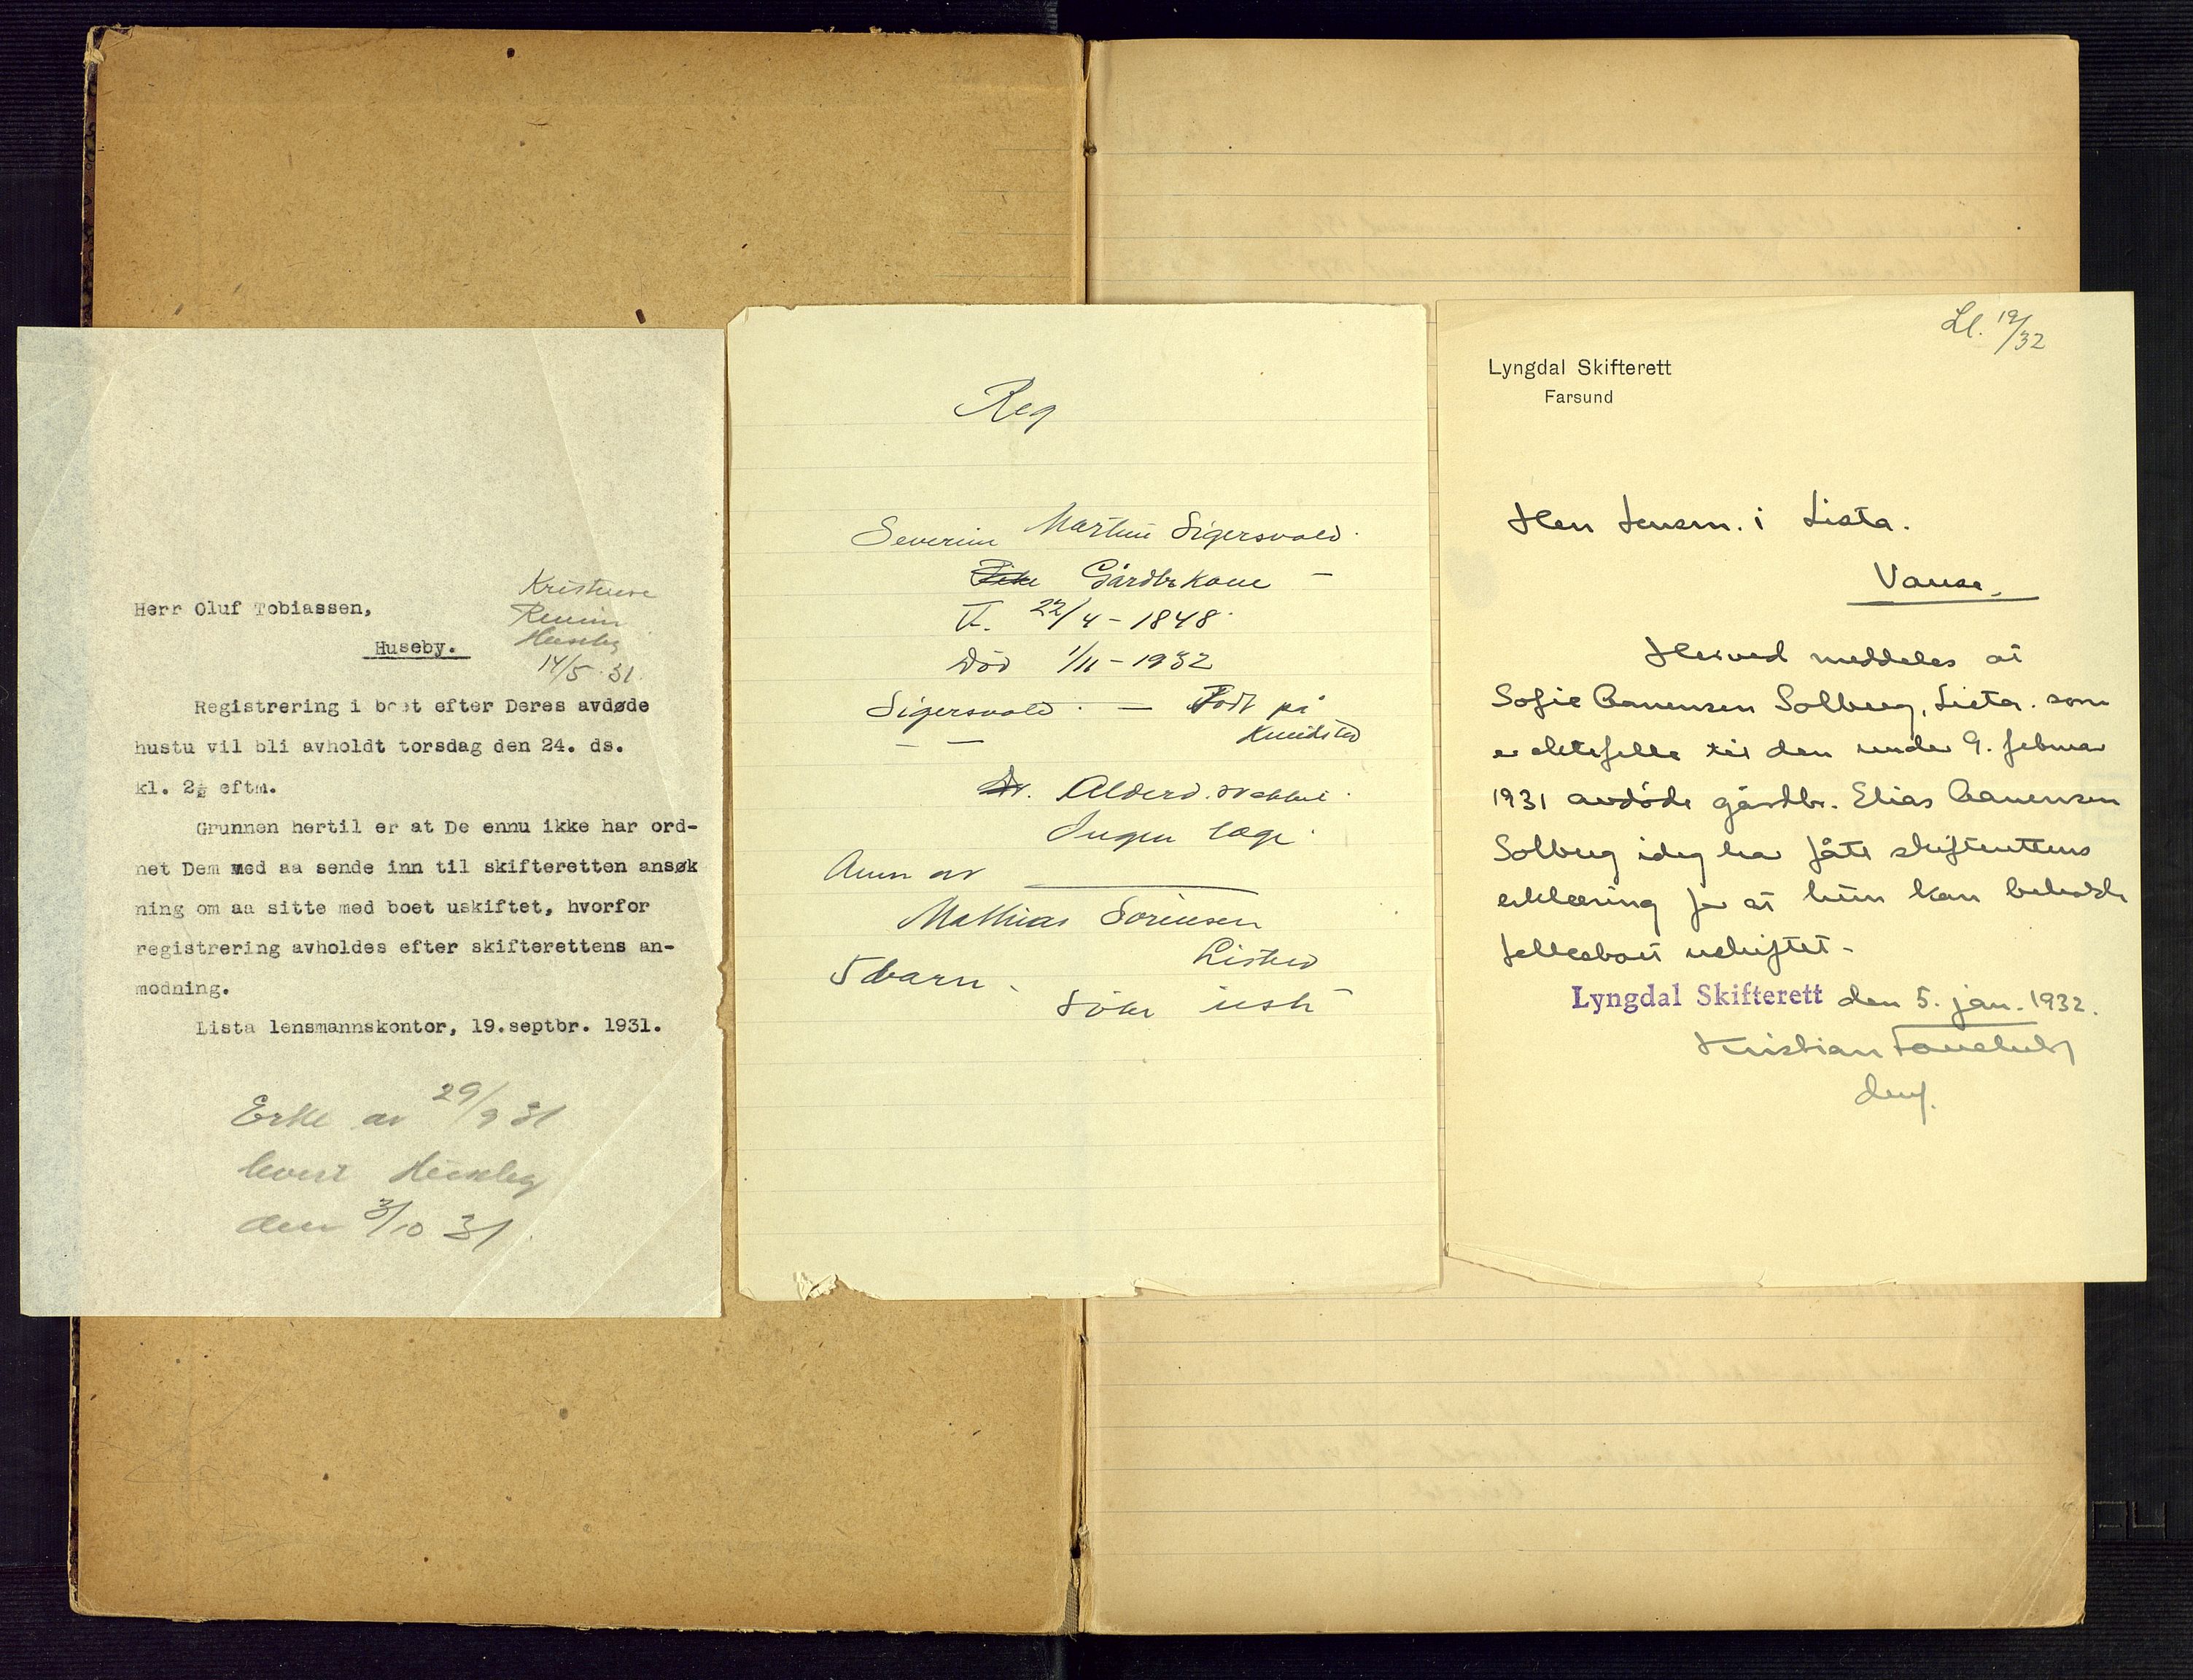 Herr Oluf Tobiassen,
Huseby.
Kristense
Huseby
14/5 31.
Registrering i boet efter Deres avdøde
hustu vil bli avholdt torsdag den 24. ds.
kl. 2½ eftm.
Grunnen hertil er at De ennu ikke har ord-
net Dem med aa sende inn til skifteretten ansøk
ning om aa sitte med boet uskiftet, hvorfor
registrering avholdes efter skifterettens an-
modning.
Lista lensmannskontor, 19.septbr. 1931.
Erkl av 29/9 31
levert Huseby
den 3/10 31
Reg
Severine Martine Sigersvold.
Gårdbrkone -
F. 22/4 - 1848.
Død 1/11 - 1932
Sigersvold. - Født på
Knivsted
Dr. Alderd.svakhet.
Ingen læge.
Anm av
Mathias Sørensen
Listed
5 barn.
Ll. 19/32
Lyngdal Skifterett
Farsund
Herr Lensm. i Lista.
Vanse.
Herved meddeles at
Sofie Aanensen Solberg, Lista. som
er ektefelle til den under 9. februar
1931 avdøde gårdbr. Elias Aanensen
Solberg idag har fått skifterettens
erklæring for at hun kan beholde
fellesboet uskiftet-
Lyngdal Skifterett den 5. jan. 1932.
Kristian